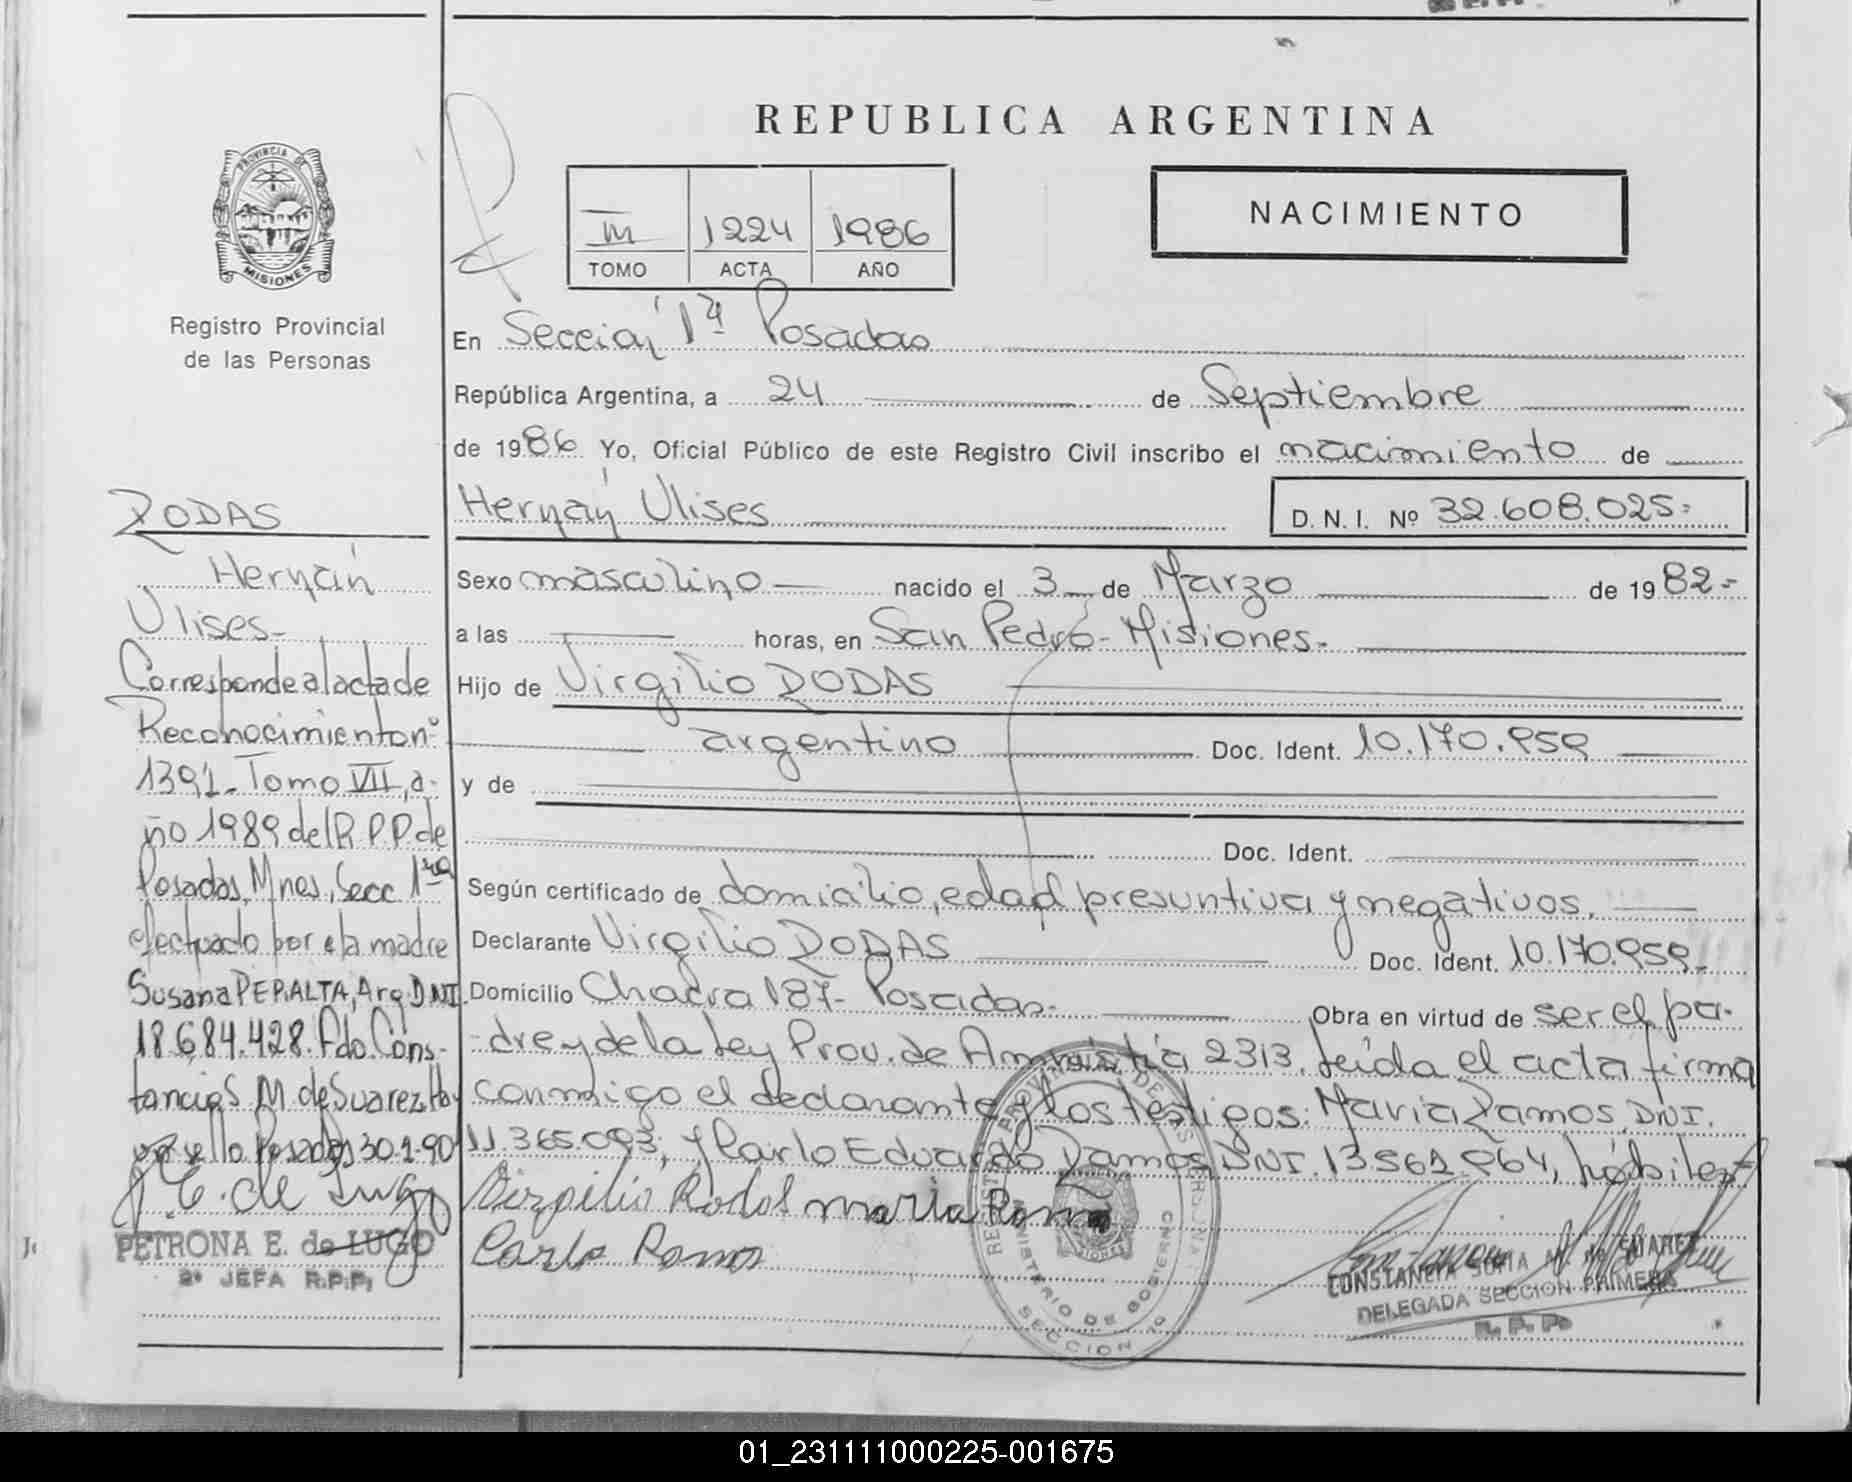 REPUBLICA ARGENTINA
PROVINCIA DE
MISIONES
Registro Provincial
de las Personas
III 1224 1986
TOMO ACTA AÑO
NACIMIENTO
En Sección 1ª Posadas
República Argentina, a 24 de Septiembre
de 1986 Yo, Oficial Público de este Registro Civil inscribo el nacimiento de
Hernán Ulises
D. N. I. Nº 32.608.025
Sexo masculino nacido el 3 de Marzo de 1982
a las horas, en San Pedro - Misiones.
Hijo de Virgilio RODAS
argentino Doc. Ident. 10.170.959
y de
Doc. Ident.
Según certificado de domicilio, edad presuntiva y negativos.
Declarante Virgilio RODAS Doc. Ident. 10.170.959.
Domicilio Chacra 187- Posadas- Obra en virtud de ser el pa-
-dre y de la Ley Prov. de Amnistía 2313. Leída el acta firma
conmigo el declarante y los testigos: María Ramos, DNI.
11.365.093, y Carlo Eduardo Ramos DNI. 13.561.964, hábiles
Virgilio Rodas maria Ramo
Carlo Ramos
RODAS
Hernán
Ulises-
Corresponde al acta de
Reconocimiento nº
1391- Tomo VII, a-
ño 1989 del R.P.P. de
Posadas, Mnes, Secc 1ra
efectuado por la madre
Susana PERALTA, Arg. DNI.
18.684.428. Fdo. Cons-
tancia S. M. de Suarez
sello Posadas 30-1-90
PETRONA E. de LUGO
2ª JEFA R.P.P.
MINISTERIO DE GOBIERNO
SECCION 1ª
CONSTANCIA SOFIA M. de SUAREZ
DELEGADA SECCION PRIMERA
R. P. P.
01_231111000225-001675